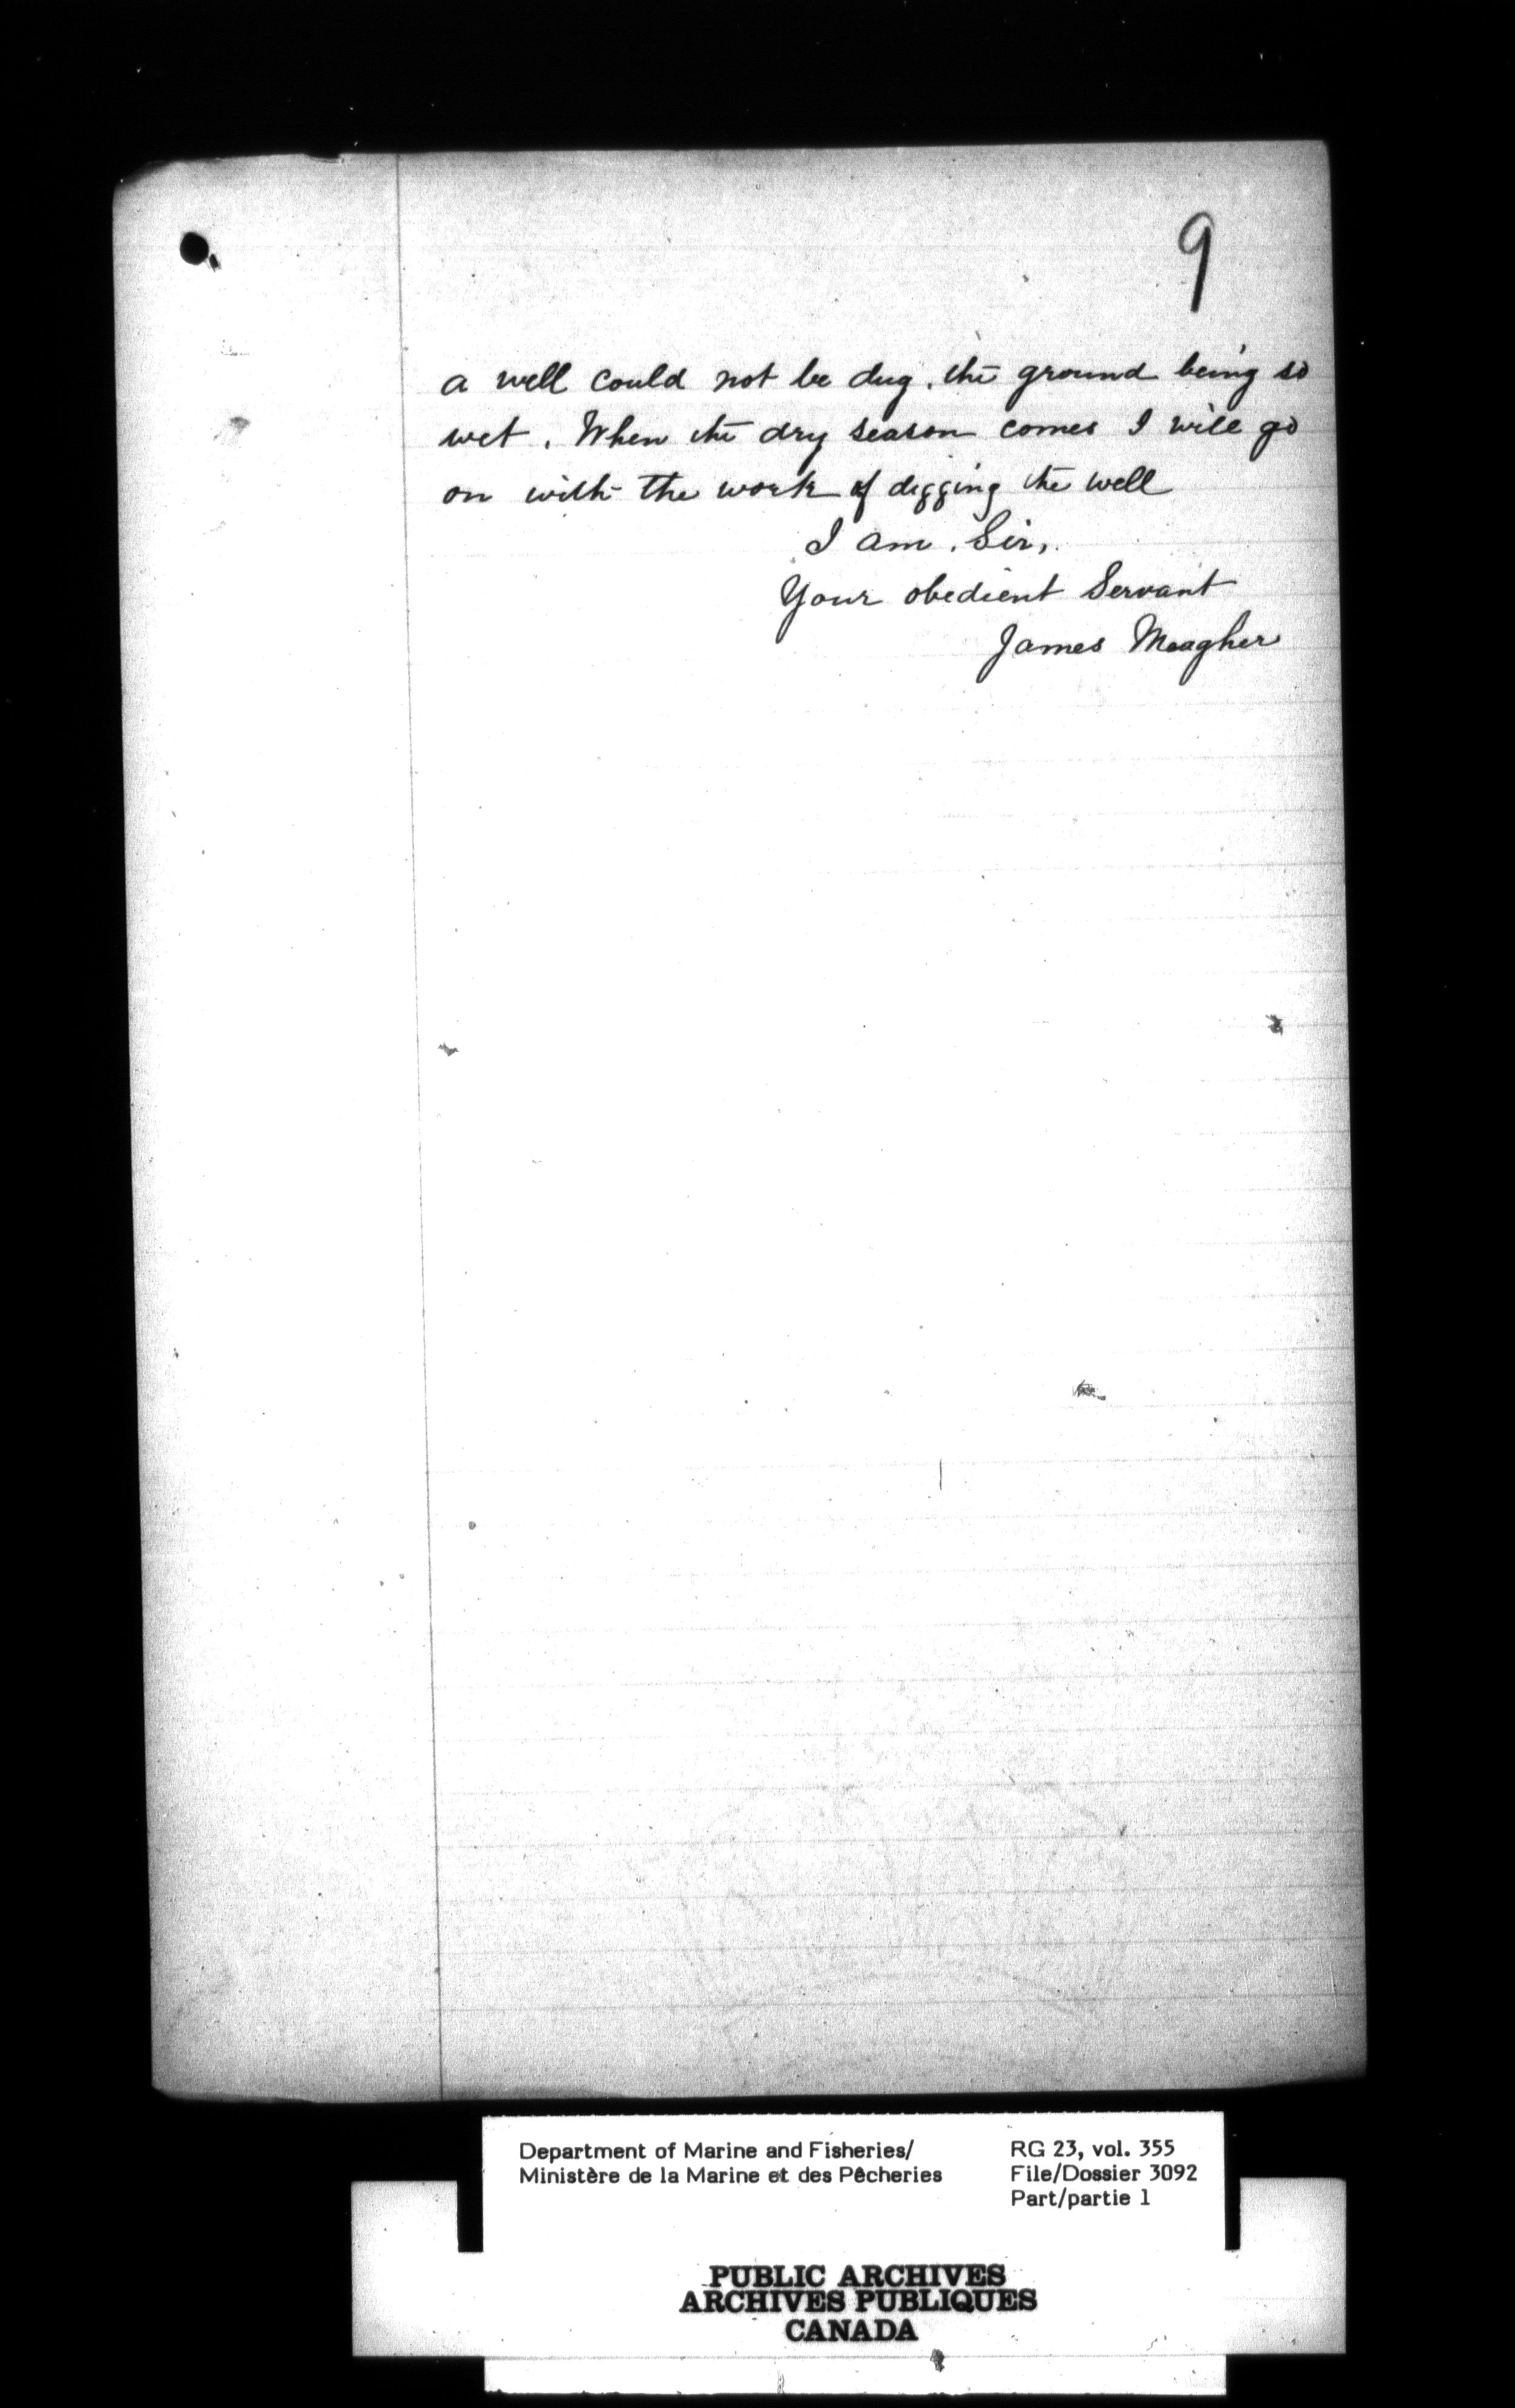 9
a well could not be dug. the ground being so
wet. When the dry season comes I will go
on with the work of digging the well
I am, Sir,
Your obedient Servant
James Meagher
Department of Marine and Fisheries/
Ministère de la Marine et des Pêcheries
RG 23, vol. 355
File/Dossier 3092
Part/partie 1
PUBLIC ARCHIVES
ARCHIVES PUBLIQUES
CANADA